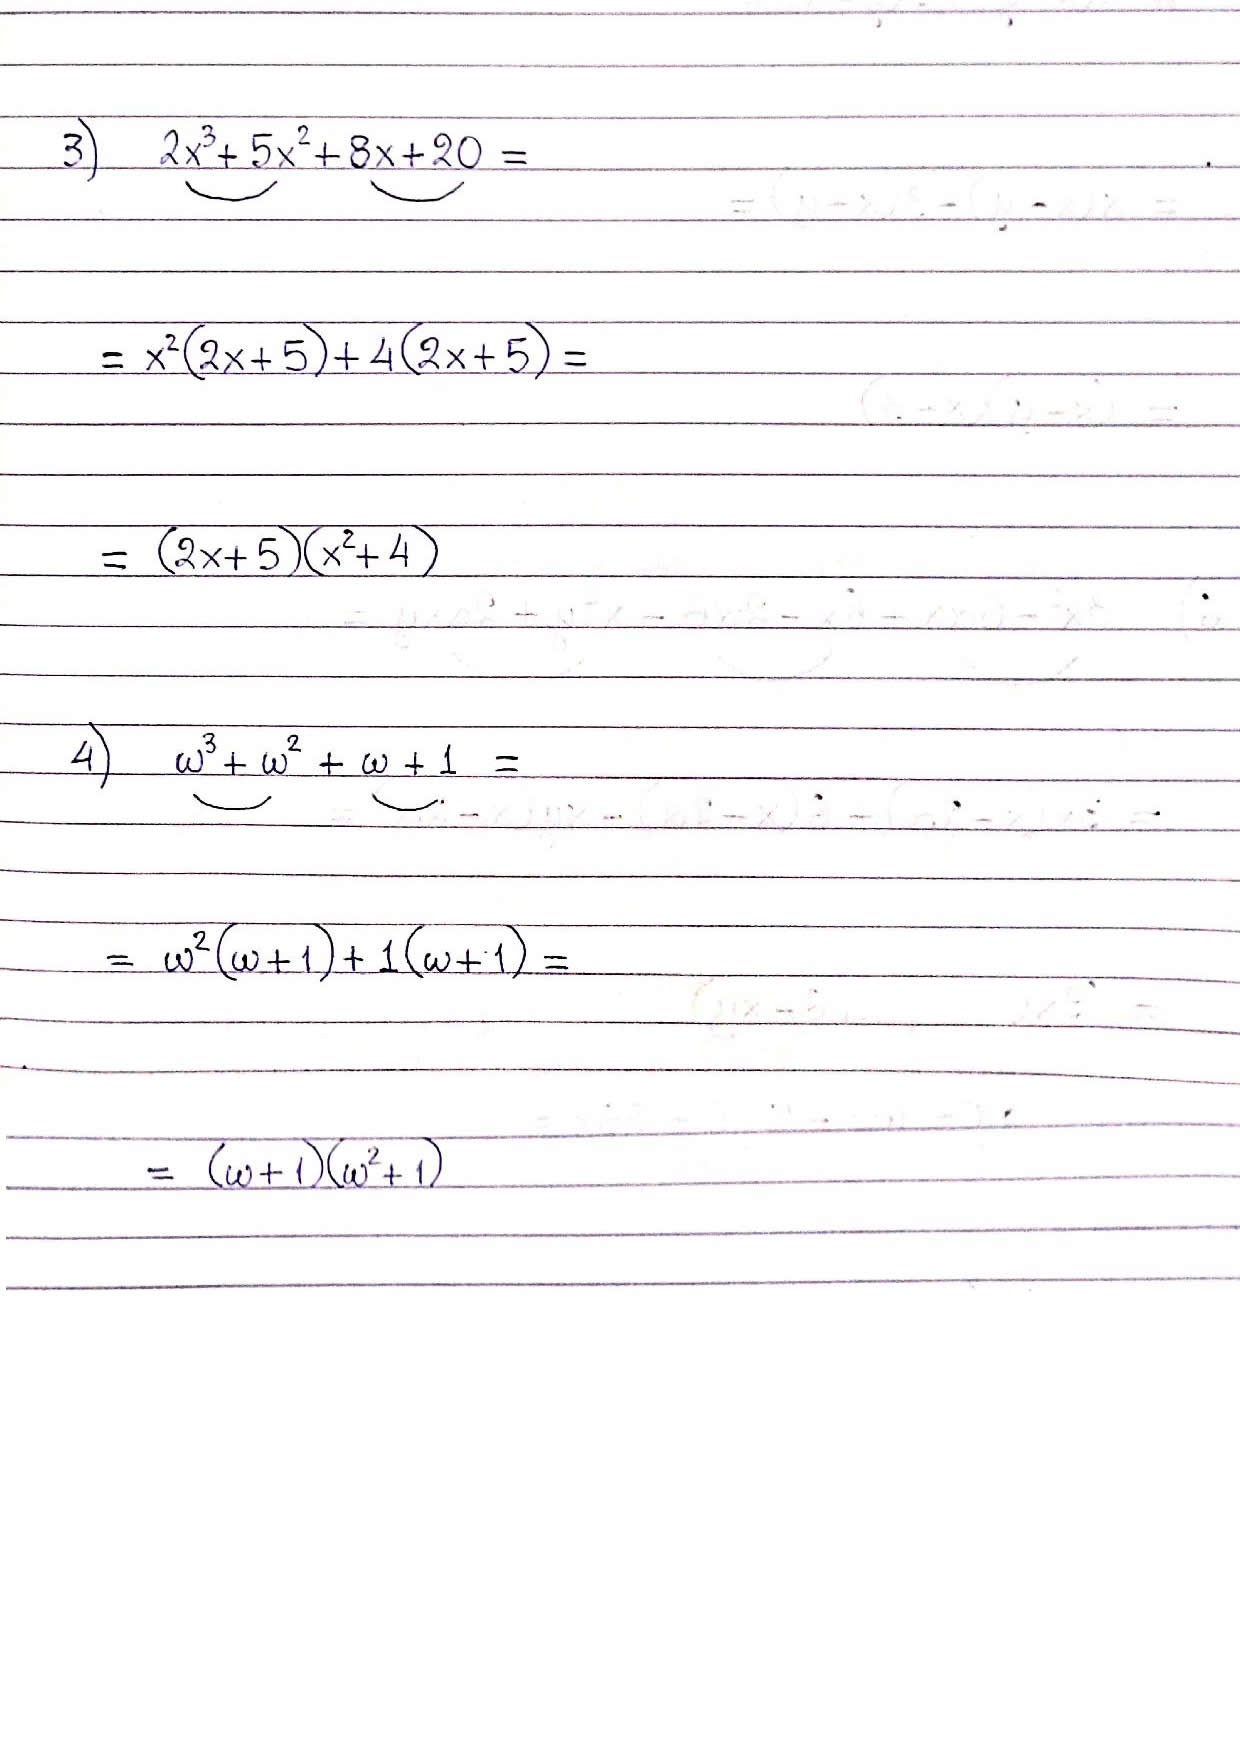 3) 2x³+5x²+8x+20=
= x²(2x+5)+4(2x+5)=
= (2x+5)(x²+4)
4) ω³+ω²+ω+1 =
= ω²(ω+1)+1(ω+1)=
= (ω+1)(ω²+1)